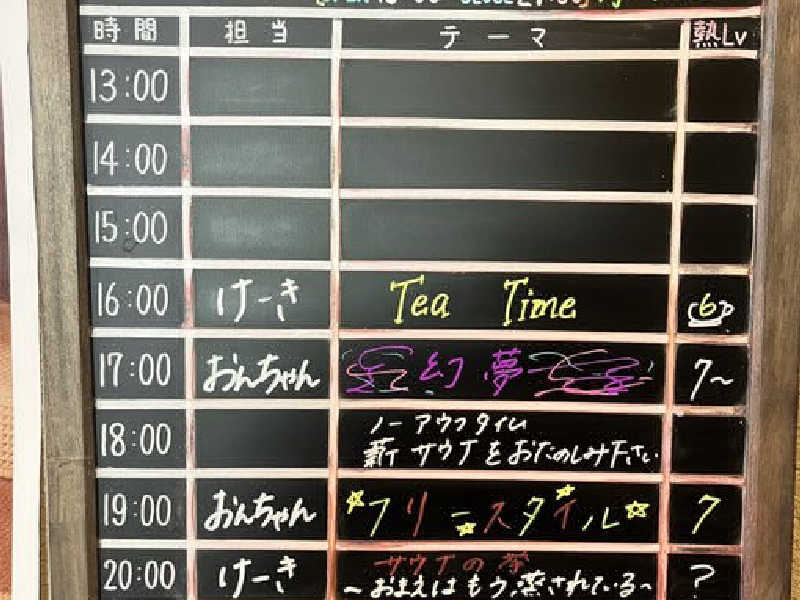 時間 担当 テーマ 熱Lv
13:00
14:00
15:00
16:00 けーき Tea Time 6
17:00 おんちゃん 幻夢 7~
18:00 ノーアウフタイム
薪サウナをおたのしみ下さい
19:00 おんちゃん フリースタイル 7
20:00 けーき サウナの祭 ?
~おまえはもう蒸されている~